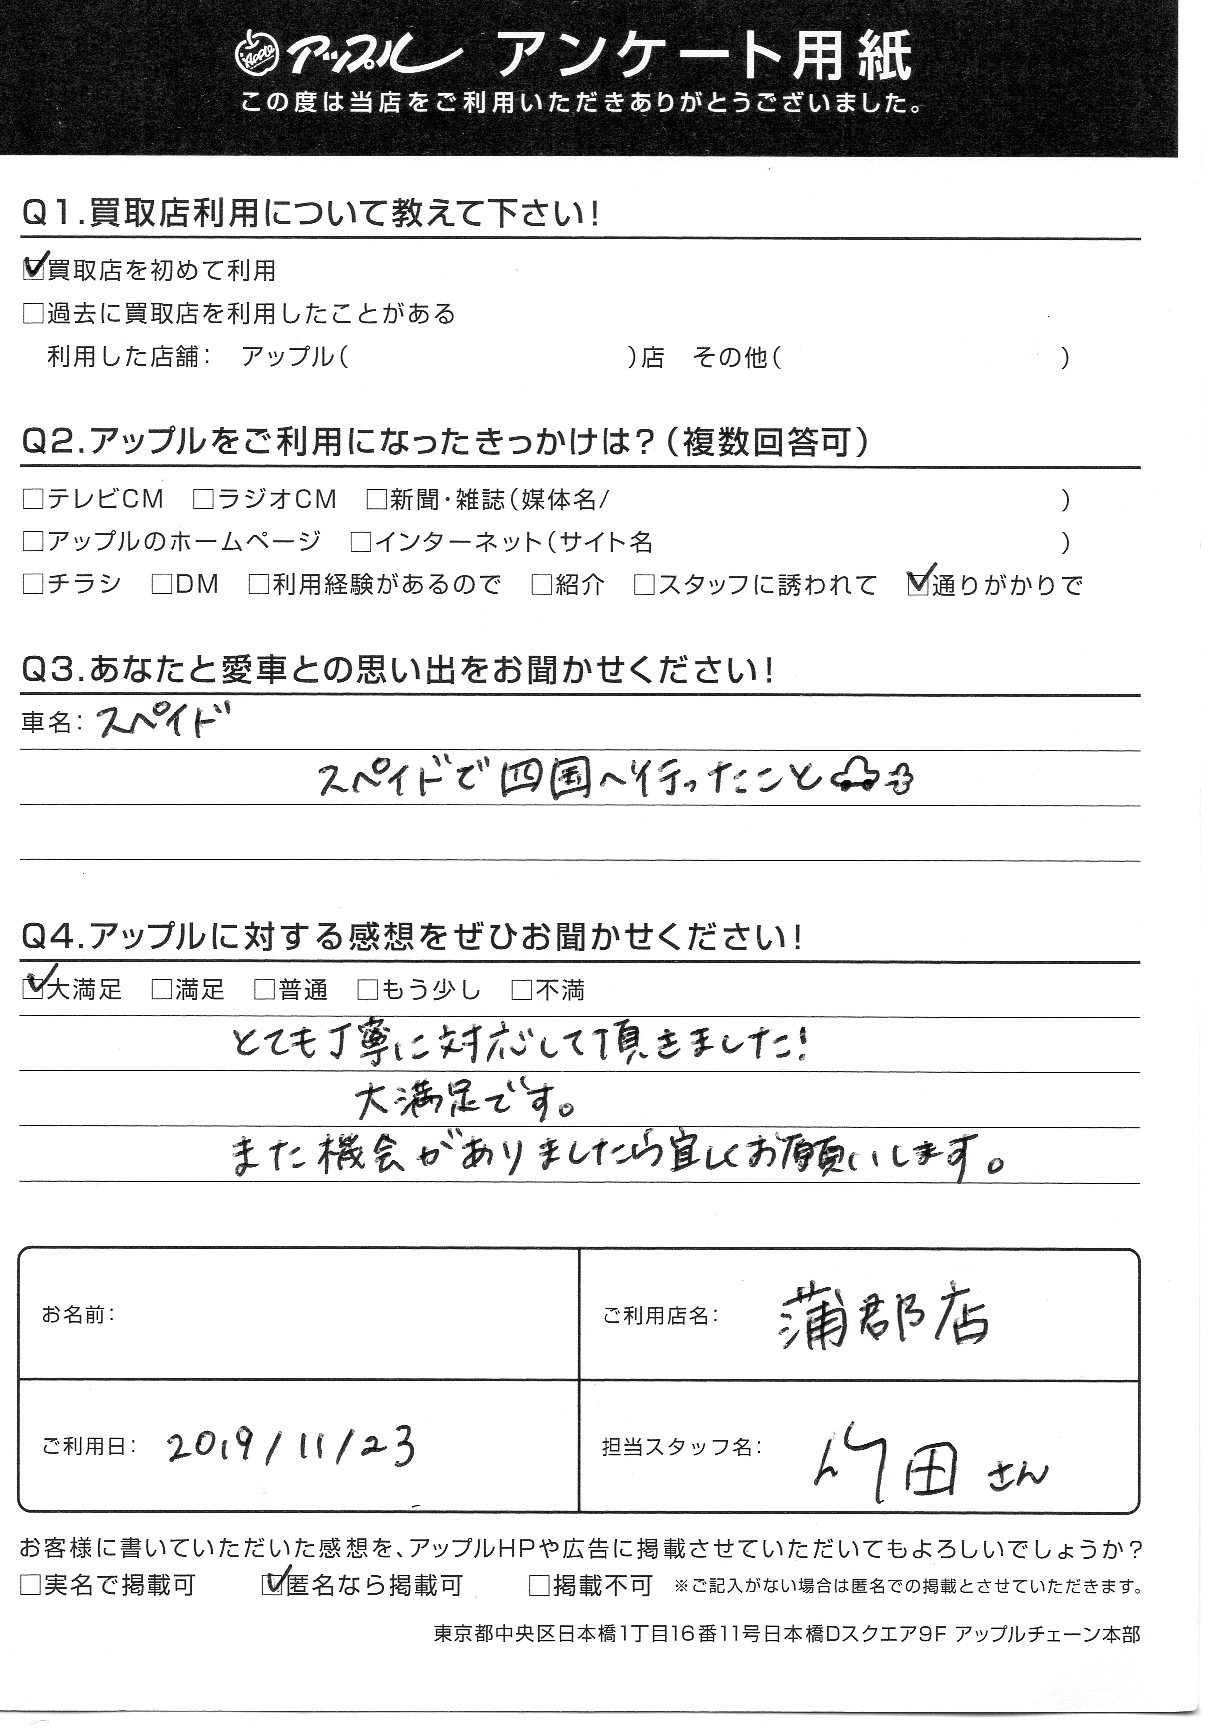 Apple アップル アンケート用紙
この度は当店をご利用いただきありがとうございました。
Q1.買取店利用について教えて下さい!
☑買取店を初めて利用
□過去に買取店を利用したことがある
利用した店舗: アップル( )店 その他( )
Q2.アップルをご利用になったきっかけは?(複数回答可)
□テレビCM □ラジオCM □新聞・雑誌(媒体名/ )
□アップルのホームページ □インターネット(サイト名 )
□チラシ □DM □利用経験があるので □紹介 □スタッフに誘われて ☑通りがかりで
Q3.あなたと愛車との思い出をお聞かせください!
車名: スペイド
スペイドで四国へ行ったこと
Q4.アップルに対する感想をぜひお聞かせください!
☑大満足 □満足 □普通 □もう少し □不満
とても丁寧に対応して頂きました!
大満足です。
また機会がありましたら宜しくお願いします。
お名前:
ご利用店名: 蒲郡店
ご利用日: 2019/11/23
担当スタッフ名: 竹田さん
お客様に書いていただいた感想を、アップルHPや広告に掲載させていただいてもよろしいでしょうか?
□実名で掲載可 ☑匿名なら掲載可 □掲載不可 ※ご記入がない場合は匿名での掲載とさせていただきます。
東京都中央区日本橋1丁目16番11号日本橋Dスクエア9F アップルチェーン本部